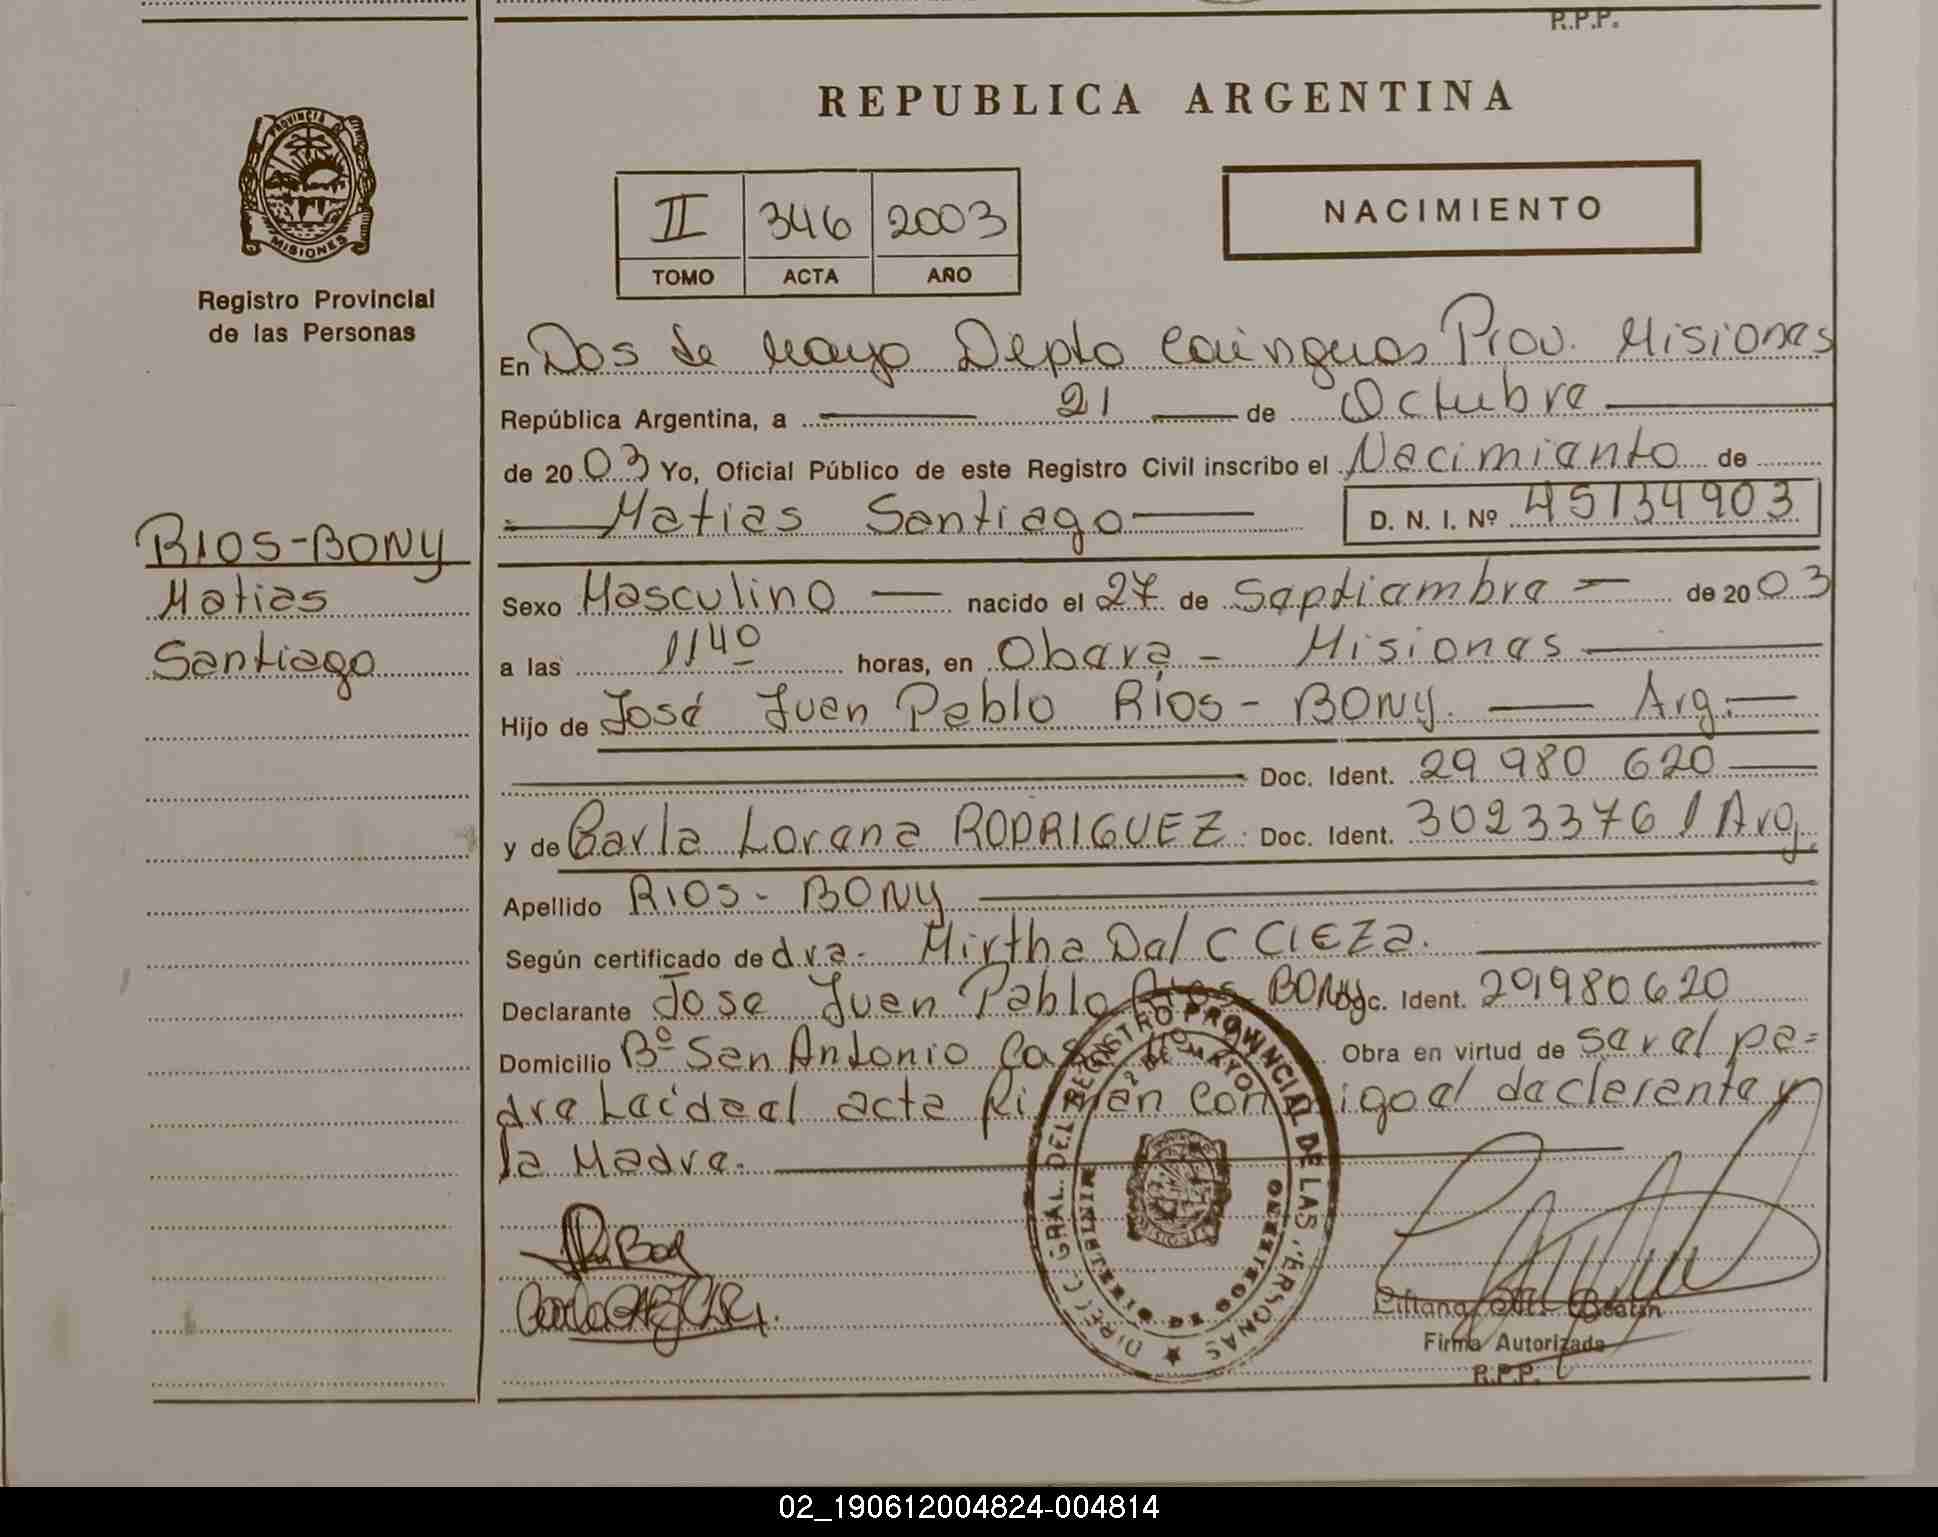 R.P.P.
REPUBLICA ARGENTINA
PROVINCIA DE
MISIONES
Registro Provincial
de las Personas
II 346 2003
TOMO ACTA AÑO
NACIMIENTO
En Dos de Mayo Depto Cainguas Prov. Misiones
República Argentina, a 21 de Octubre
de 2003 Yo, Oficial Público de este Registro Civil inscribo el Nacimiento de
Matias Santiago D. N. I. Nº 45134903
RIOS-BONY
Matias
Santiago
Sexo Masculino nacido el 27 de Septiembre de 2003
a las 1140 horas, en Obera - Misiones
Hijo de José Juan Pablo Ríos - BONY. Arg.
Doc. Ident. 29 980 620
y de Carla Lorena RODRIGUEZ Doc. Ident. 30233761 Arg.
Apellido RIOS - BONY
Según certificado de dra. Mirtha Dal C CIEZA.
Declarante Jose Juan Pablo Rios BONY Doc. Ident. 29980620
Domicilio Bº San Antonio Obra en virtud de ser el pa-
dre Leída el acta firman conmigo el declarante y
la Madre.
DIREC. GRAL. DEL REGISTRO PROVINCIAL DE LAS PERSONAS
2 DE MAYO
MINISTERIO DE GOBIERNO
Firma Autorizada
R.P.P.
02_190612004824-004814